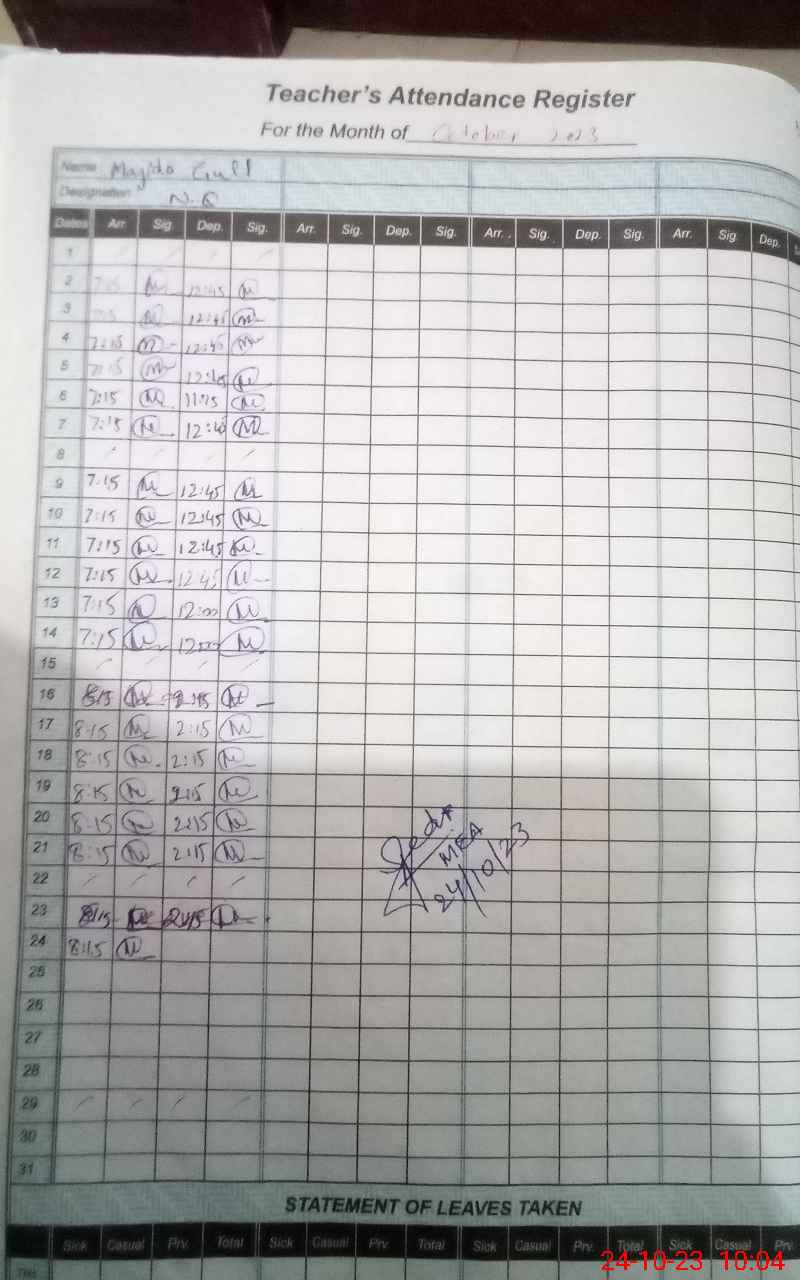 Teacher's Attendance Register
For the Month of October 2023
Name Majida Gull
Designation N.Q
Dates Arr. Sig. Dep. Sig. Arr. Sig. Dep. Sig. Arr. Sig. Dep. Sig. Arr. Sig. Dep.
1
2 7:15 12:45
3 12:45
4 7:15 12:45
5 7:15
6 7:15 11:15
7 7:15
8
9 7:15 12:45
10 7:15 12:45
11 7:15 12:45
12 7:15 12:45
13 7:15 12:00
14 7:15 12:00
15
16 8:15 2:15
17 8:15 2:15
18 8:15 2:15
19 8:15 2:15
20 8:15 2:15
21 8:15 2:15
22
23 8:15 2:15
24 8:15
25
26
27
28
29
30
31
MEA
24/10/23
STATEMENT OF LEAVES TAKEN
Sick Casual Prv. Total Sick Casual Prv. Total Sick Casual Prv. Total Sick Casual Prv.
24-10-23 10:04